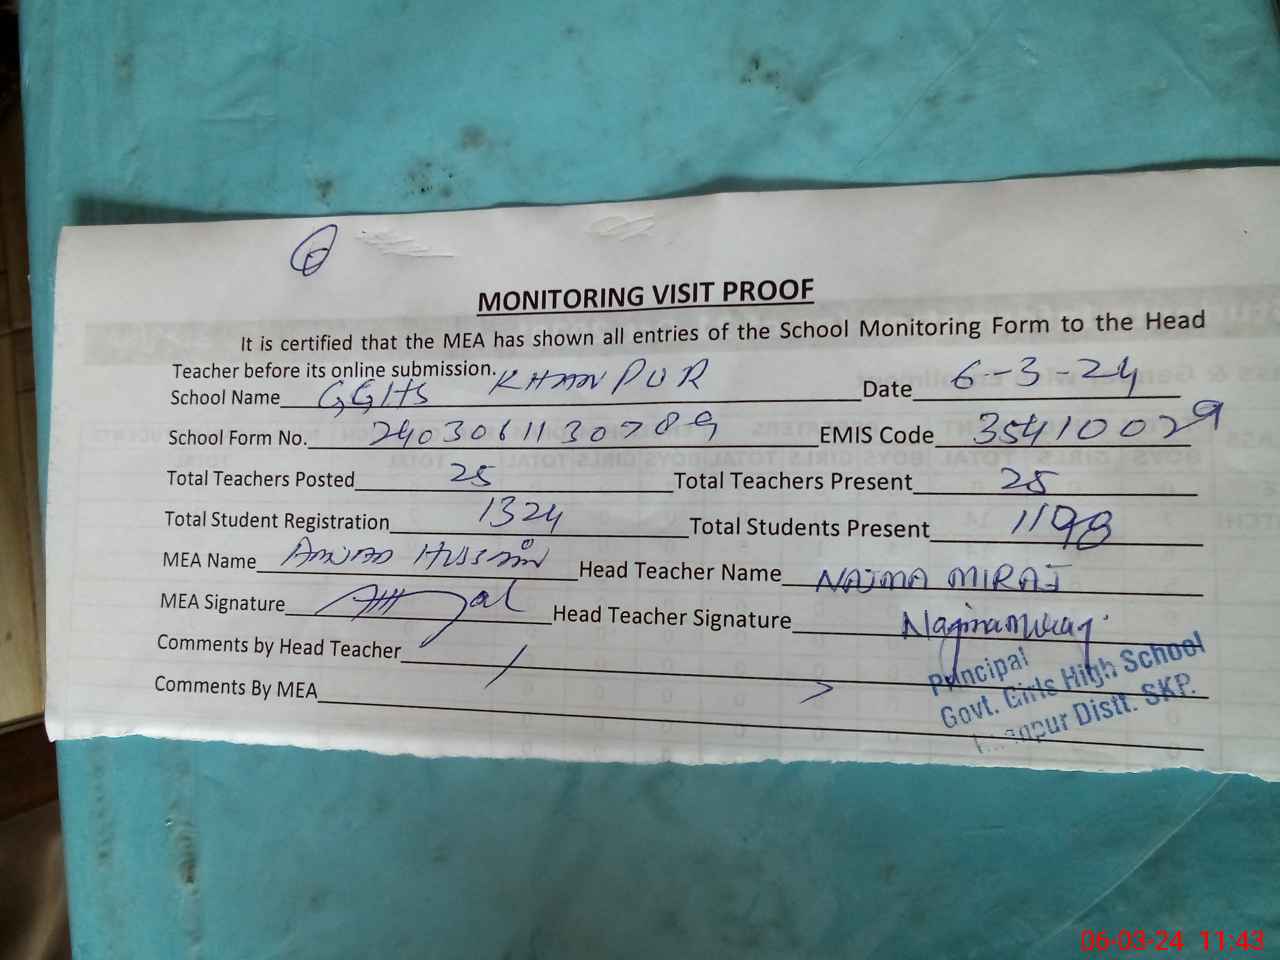 MONITORING VISIT PROOF
It is certified that the MEA has shown all entries of the School Monitoring Form to the Head
Teacher before its online submission.
School Name GGHS KHANPUR Date 6-3-24
School Form No. 2403061130789 EMIS Code 35410029
Total Teachers Posted 25 Total Teachers Present 25
Total Student Registration 1324 Total Students Present 1198
MEA Name HUSSAIN Head Teacher Name NAJMA MIRAJ
MEA Signature Head Teacher Signature
Comments by Head Teacher
Comments By MEA
Principal
Govt. Girls High School
Distt. SKP.
06-03-24 11:43